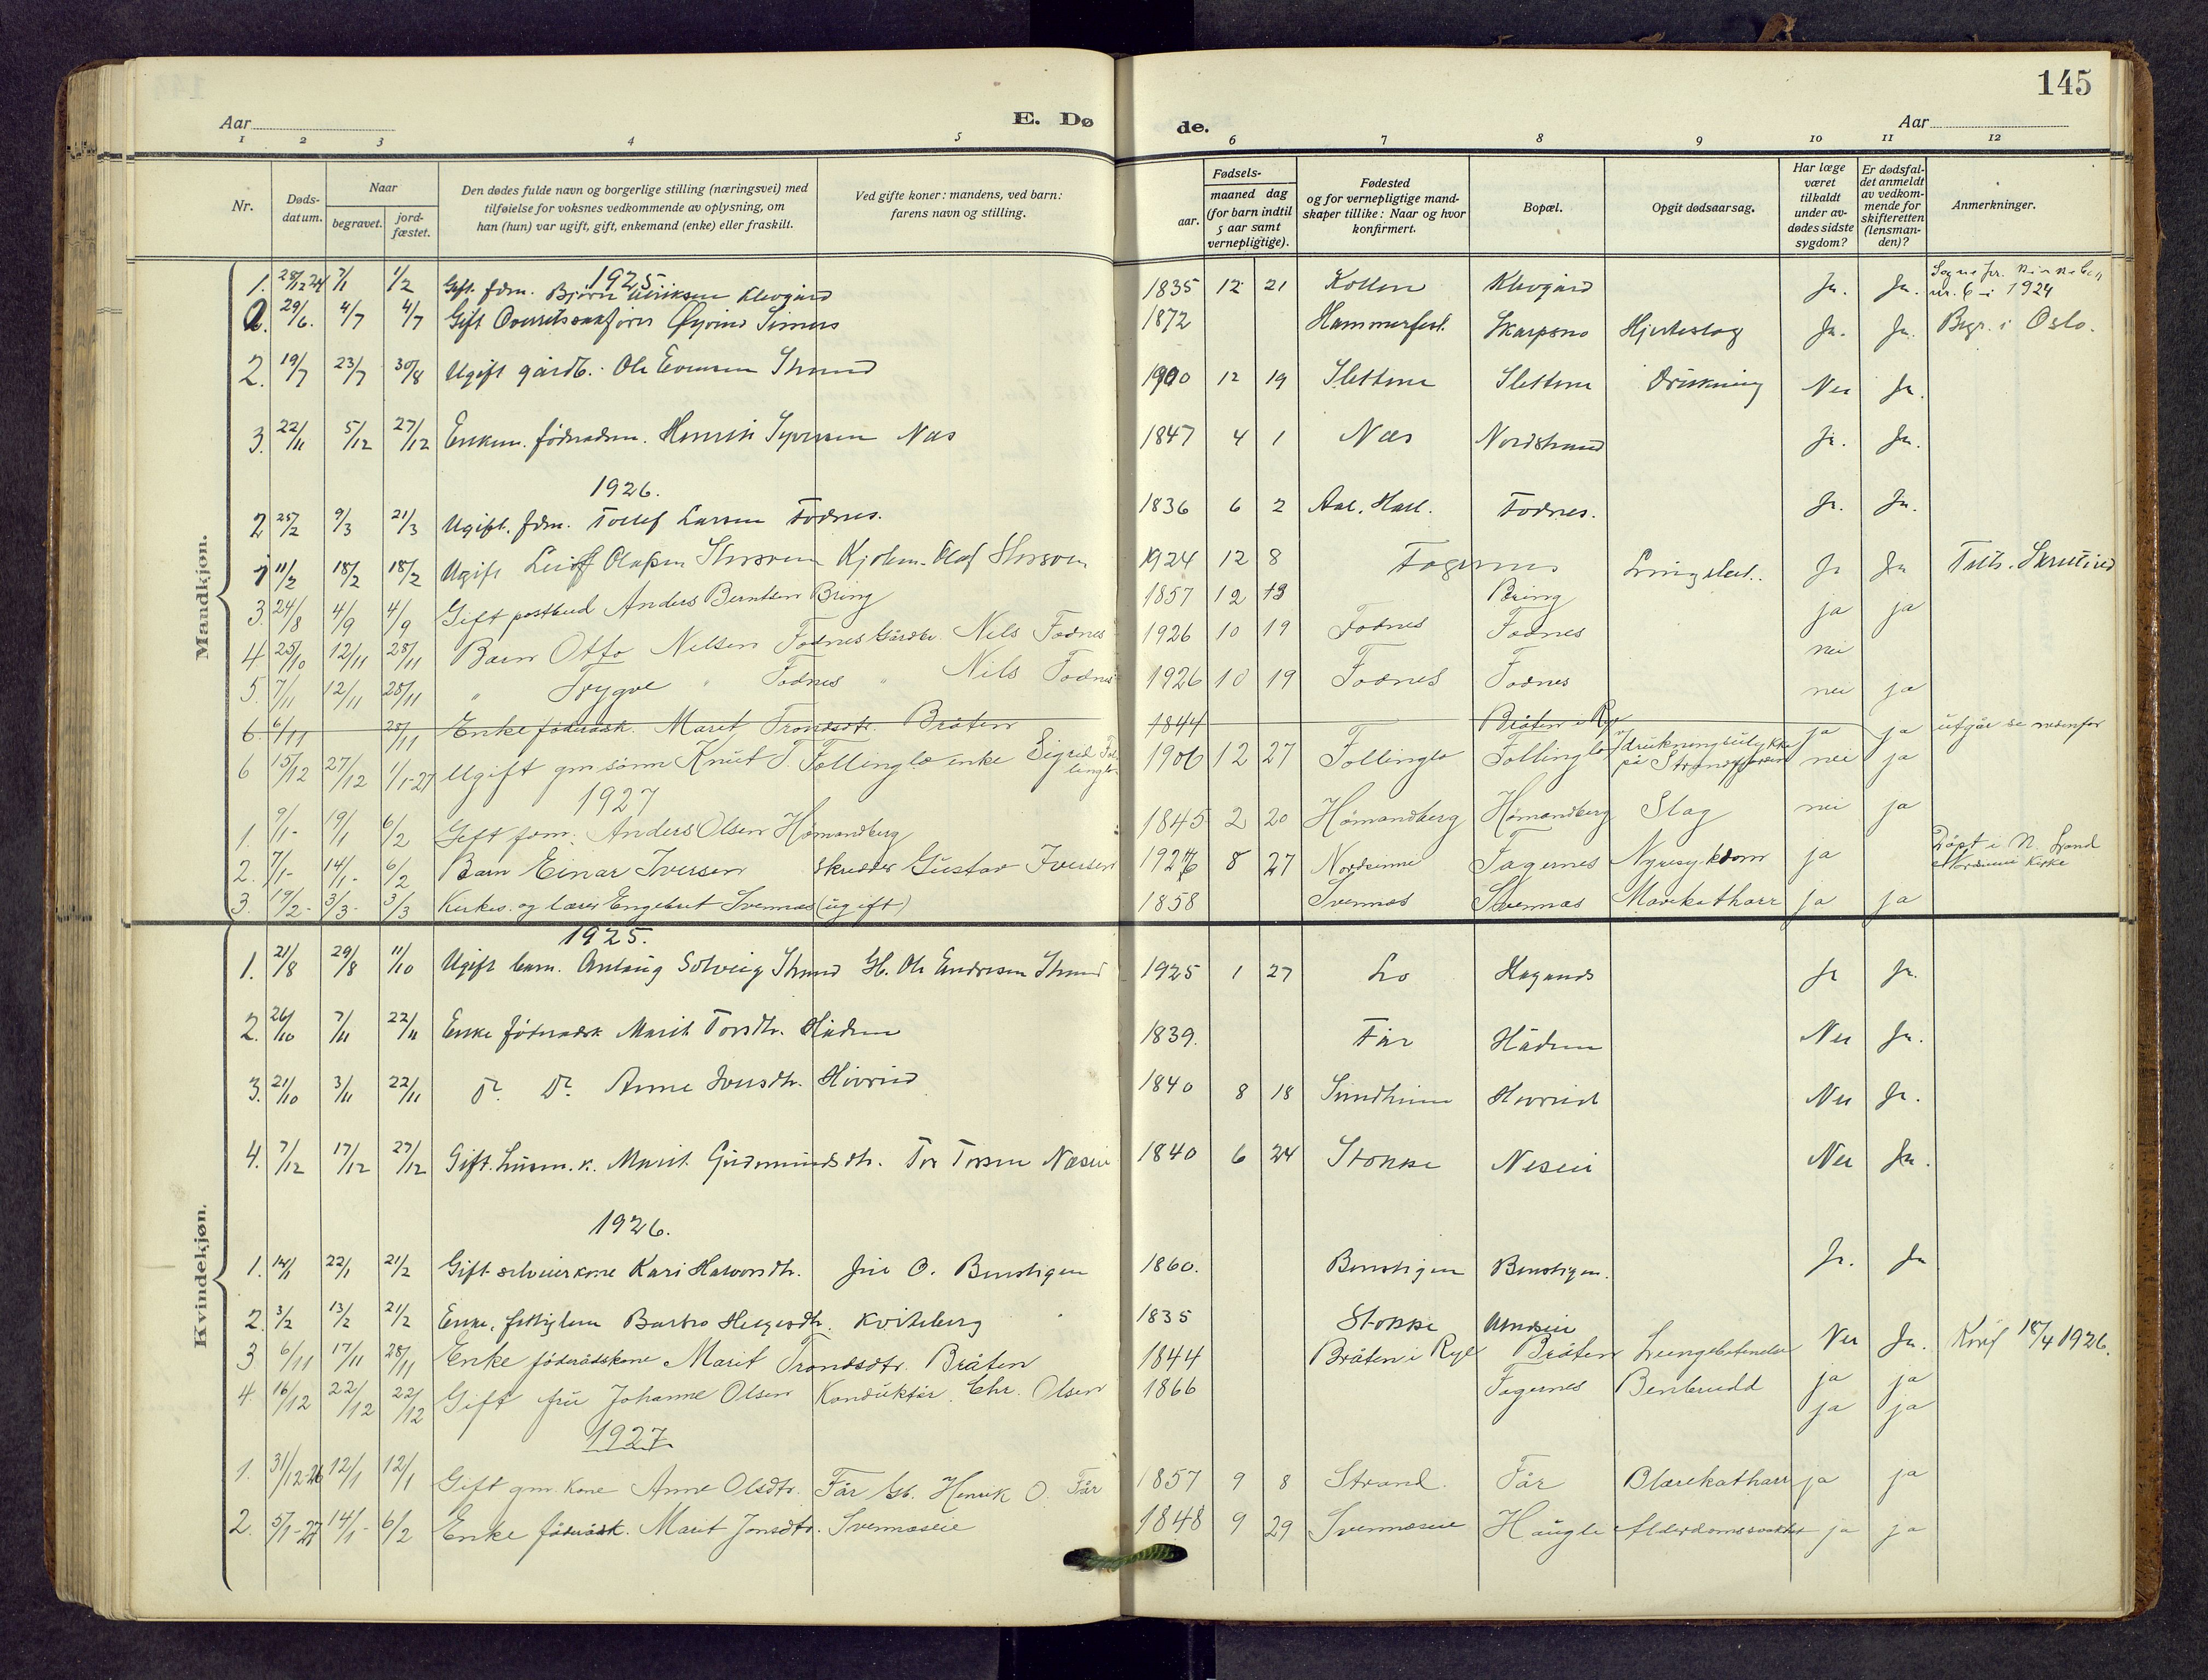 145
Aar
E. Dø
de.
Aar
1 2 3 4 5 6 7 8 9 10 11 12
Nr.
Døds-datum.
Naar
begravet.
jord-fæstet.
Den dødes fulde navn og borgerlige stilling (næringsvei) med
tilføielse for voksnes vedkommende av oplysning, om
han (hun) var ugift, gift, enkemand (enke) eller fraskilt.
Ved gifte koner: mandens, ved barn:
farens navn og stilling.
Fødsels-
aar.
maaned dag
(for barn indtil
5 aar samt
vernepligtige).
Fødested
og for vernepligtige mand-
skaper tillike: Naar og hvor
konfirmert.
Bopæl.
Opgit dødsaarsag.
Har læge
været
tilkaldt
under av-
dødes sidste
sygdom?
Er dødsfal-
det anmeldt
av vedkom-
mende for
skifteretten
(lensman-
den)?
Anmerkninger.
Mandkjøn.
1925
1. 28/12 24 7/1 1/2 Gift. fdm. Bjørn Eriksen Klevgård 1835 12 21 Kollen Klevgård Ja. Ja. nr. 6 i 1924
29/6. 4/7 4/7 Gift Overretssakfører Øyvind 1872 Hammerfest. Skarpsno Hjerteslag Ja. Ja. Begr. i Oslo.
2. 19/7 23/7 30/8 Ugift gårdb. Ole Evensen Strand 1900 12 19 Slettene Slettene Drukning Nei Ja.
3. 22/11 5/12 27/12 Enkem. föderådsm. Henrik Syversen Næs 1847 4 1 Næs Nordstrand Ja. Ja.
1926.
2. 25/2 9/3 21/3 Ugift. fdm. Tollef Larsen Fodnes. 1836 6 2 Aal, Hall. Fodnes. Ja. Ja.
1 11/2 18/2 18/2 Ugift Leif Olafsen Olaf 1924 12 8 Fagernes Ja Ja
3. 24/8 4/9 4/9 Gift postbud Anders Berntsen Bring 1857 12 13 Bring ja ja
4 25/10 12/11 28/11 Barn Otto Nelsen Fodnes Gårdbr. Nils Fodnes 1926 10 19 Fodnes Fodnes nei
5. 7/11 12/11 28/11 " Trygve " Fodnes " Nils Fodnes 1926 10 19 Fodnes Fodnes nei ja
6. 6/11 28/11 Enke föderådsk. Marit Trondsdtr. Bråten 1844 Bråten i Rye ja ja utgår se nedenfor
6 15/12 27/12 1/1-27 Ugift gm. sönn Knut T. Follinglo enke Sigrid Follinglo 1906 12 27 Follinglo Follinglo drukningsulykke på Strandefjorden nei ja
1927
1. 9/1- 19/1 6/2 Gift fdm. Anders Olsen Hömandberg 1845 2 20 Hömandberg Hömandberg Slag nei ja
2. 7/1- 14/1- 6/2 Barn Einar Iversen skredder Gustav Iversen 1926 8 27 Nordsinne Fagernes Nyresykdom ja Döpt i N. Land Nordsinni Kirke
3. 19/2- 3/3- 3/3 Kirkes. og lærer Engebret Svennæs (ugift) 1858 Svennæs Svennæs Mavekatharr ja ja
Kvindekjøn.
1925.
1. 21/8 29/8 11/10 Ugift barn. Anlaug Solveig Strand Gb. Ole Endresen Strand 1925 1 27 Lo Ja Ja.
2. 26/10 7/11 22/11 Enke föderådsk Marit Torsdtr. Hådem 1839. Får Hådem Nei Ja.
3. 21/10 3/11 22/11 Do. Do. Anne Iversdtr. Hovrud 1840 8 18 Sundheim Hovrud Nei Ja.
4. 7/12 17/12 27/12 Gift. husm. k. Marit Gudmundsdtr. Tor Torsen Næseie 1840 6 24 Stokke Neseie Nei Ja.
1926.
1. 14/1 22/1 21/2 Gift selveierkone Kari Halvorsdtr. O. Benstigen 1860. Benstigen Benstigen. Ja. Ja
2. 3/2 13/2 21/2 Enke, fattiglem Barbro Helgesdtr. Kviteberg 1835 Stokke Nei Ja. Konf 18/4 1926.
3 6/11 17/11 28/11 Enke föderådskone Marit Trondsdtr. Bråten 1844 Bråten i Rye Bråten Lungebetendelse ja ja
4. 16/12 22/12 22/12 Gift fru Johanne Olsen Konduktör Chr. Olsen 1866 Fagernes Benbrudd ja ja
1927
1. 31/12-26 12/1 12/1 Gift gm. kone Anne Olsdtr. Får Gb. Henrik O. Får 1857 9 8 Strand. Får Blærekatharr ja ja
2. 5/1-27 14/1- 6/2 Enke föderådsk. Marit Jonsdtr. Svennæseie 1848 9 29 Svennæseie Haugle Alderdomssvakhet ja ja